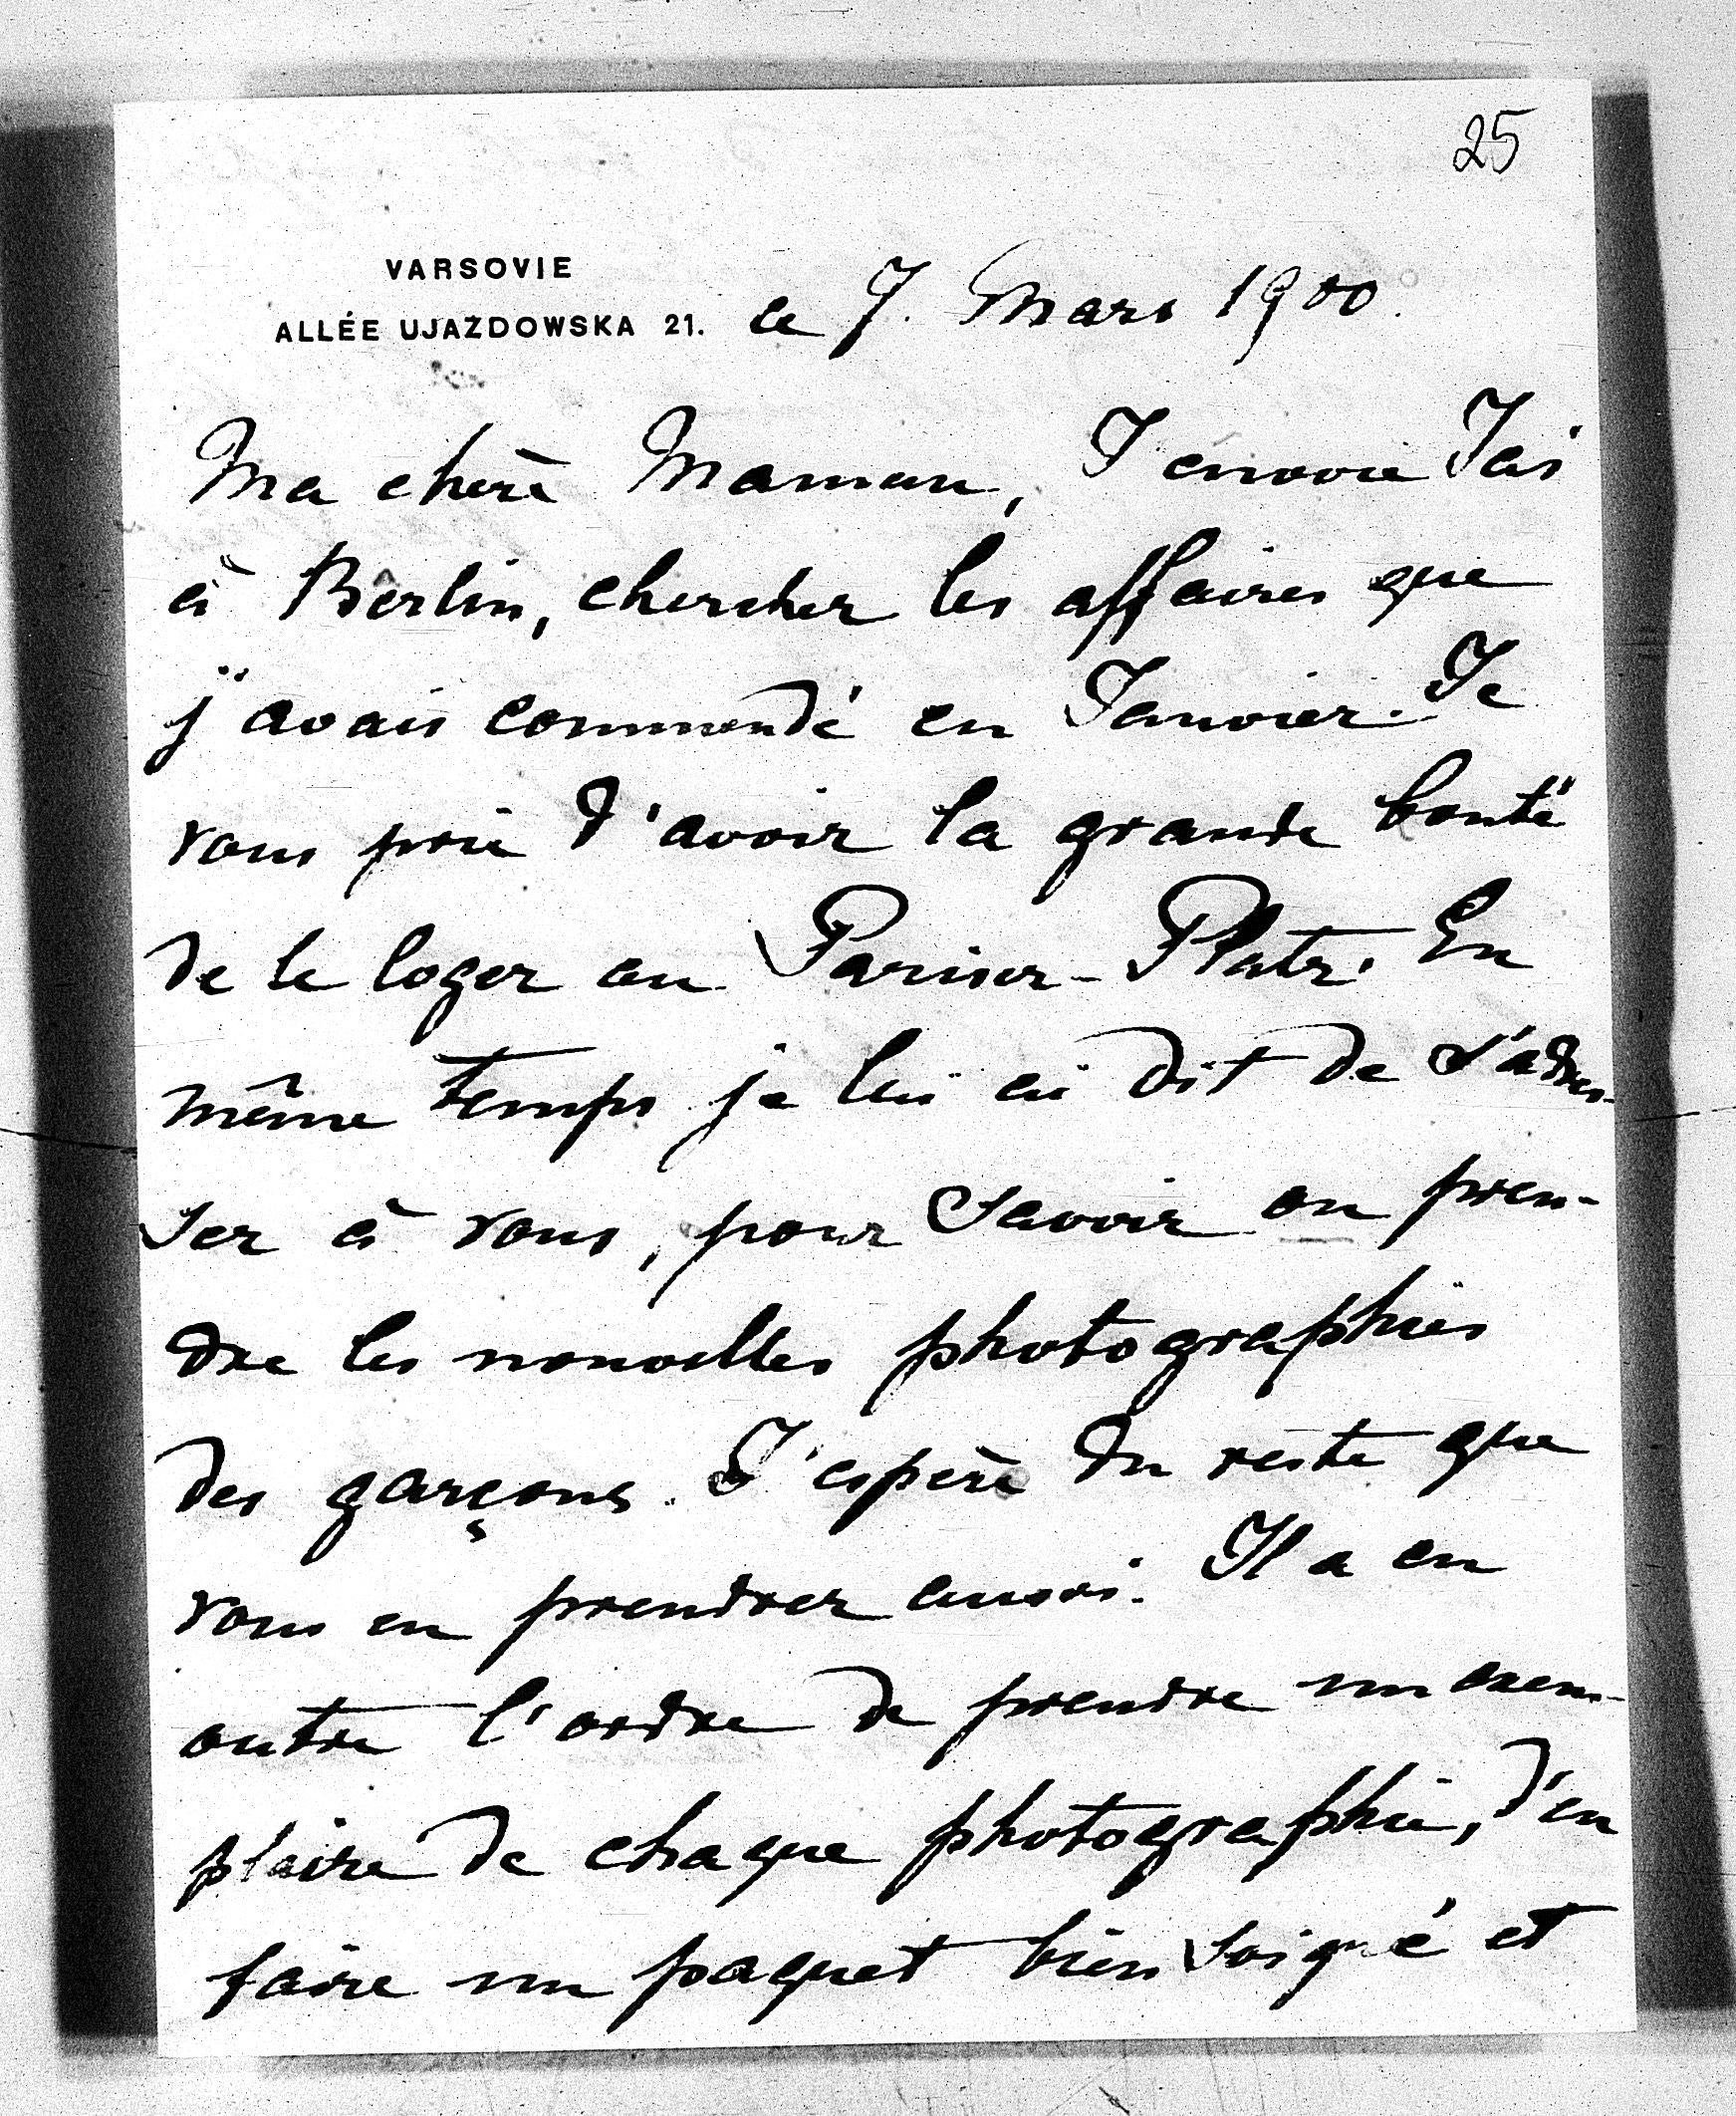 25
VARSOVIE
ALLÉE UJAZDOWSKA 21. le 7. Mars 1900.
Ma chère Maman, J'envoie
à Berlin, chercher les affaires que
j'avais commandé en Janvier. Je
vous prie d'avoir la grande bonté
de le loger au Pariser-Platz. En
même temps je lui ai dit de s'adres-
ser à vous, pour savoir ou pren-
dre les nouvelles photographies
des garçons. J'espère du reste que
vous en prendrez aussi. Il a en
outre l'ordre de prendre un exem-
plaire de chaque photographie, d'en
faire un paquet bien soigné et